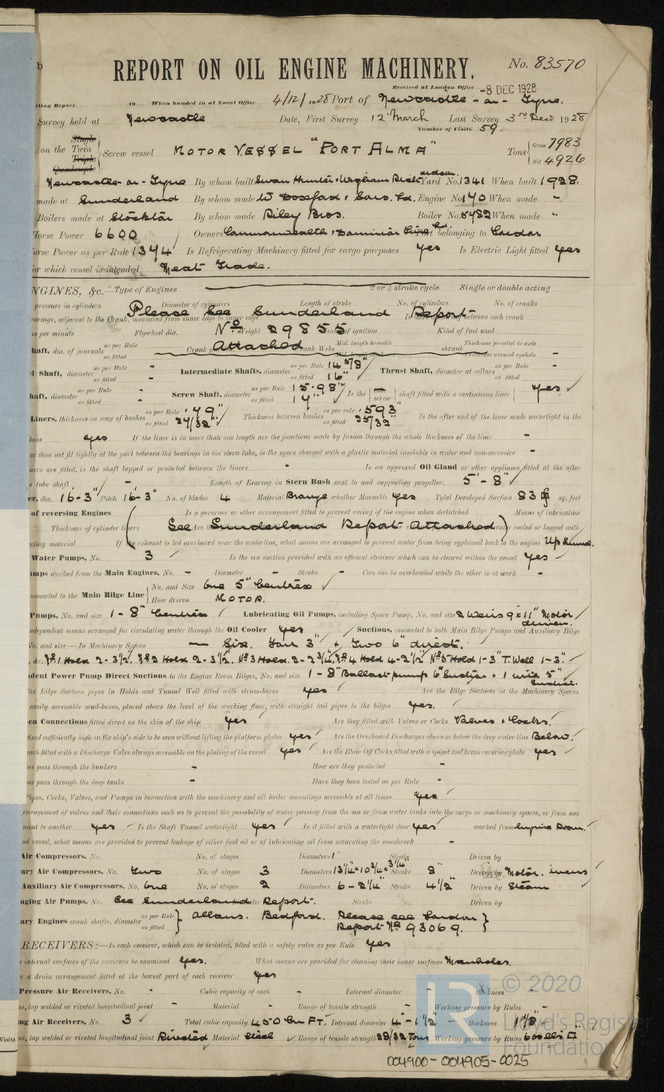 REPORT ON OIL ENGINE MACHINERY. No. 83570
Received at London Office -8 DEC 1928
When handed in at Local Office 4/12/1928 Port of Newcastle-on-Tyne.
Survey held at Newcastle Date, First Survey 12th March Last Survey 3rd Decr 1928
Number of Visits 59
on the Single Twin Triple Quadruple Screw vessel MOTOR VESSEL "PORT ALMA" Tons Gross 7983 Net 4926
Newcastle-on-Tyne By whom built Swan Hunter & Wigham Richardson Yard No. 1341 When built 1928
made at Sunderland By whom made W Doxford & Sons. Ld. Engine No. 140 When made "
Boilers made at Stockton By whom made Riley Bros. Boiler No. 5482 When made "
Horse Power 6600 Owners Commonwealth & Dominion Line Ld belonging to London
Horse Power as per Rule 1344 Is Refrigerating Machinery fitted for cargo purposes Yes Is Electric Light fitted Yes
for which vessel is intended Meat Trade.
ENGINES, &c. Type of Engines 2 or 4 stroke cycle Single or double acting
Please See Sunderland Report
No 29855
Attached
Intermediate Shafts, diameter as per Rule 14 5/8" as fitted 16" Thrust Shaft, diameter at collars as per Rule - as fitted -
Screw Shaft, diameter as per Rule 15.98" as fitted 17" Is the screw shaft fitted with a continuous liner Yes
Liners, thickness in way of bushes as per Rule .79" as fitted 27/32" Thickness between bushes as per rule .593 as fitted 25/32" Is the after end of the liner made watertight in the
yes If the liner is in more than one length are the junctions made by fusion through the whole thickness of the liner -
does not fit tightly at the part between the bearings in the stern tube, is the space charged with a plastic material insoluble in water and non-corrosive -
are fitted, is the shaft lapped or protected between the liners - Is an approved Oil Gland or other appliance fitted at the after
tube shaft - Length of Bearing in Stern Bush next to and supporting propeller 5'-8"
dia. 16'-3" Pitch 16'-3" No. of blades 4 Material Bronze whether Moveable Yes Total Developed Surface 83 sq. feet
of reversing Engines Is a governor or other arrangement fitted to prevent racing of the engine when declutched Means of lubrication
Thickness of cylinder liners (See Sunderland Report Attached) cooled or lagged with
Water Pumps, No. 3 Is the sea suction provided with an efficient strainer which can be cleared within the vessel Yes
worked from the Main Engines, No. - Diameter - Stroke - Can one be overhauled while the other is at work -
connected to the Main Bilge Line No. and Size One 5" Centrex
How driven MOTOR.
Pumps, No. and size 1-8" Centrex Lubricating Oil Pumps, including Spare Pump, No. and size 2 Weirs 9"x11" Motor driven.
independent means arranged for circulating water through the Oil Cooler Yes Suctions, connected to both Main Bilge Pumps and Auxiliary Bilge
No. and size:-In Machinery Spaces - Six. Four 3" & Two 6" direct.
No 1 Hold 2-3½. No 2 Hold 2-3½. No 3 Hold 2-3¼. No 4 Hold 4-2½. No 5 Hold 1-3" T. Well 1-3".
Independent Power Pump Direct Suctions to the Engine Room Bilges, No. and size 1-8" Ballast pump 6" suction & 1 with 5" suction.
the Bilge Suction pipes in Holds and Tunnel Well fitted with strum-boxes Yes Are the Bilge Suctions in the Machinery Spaces
easily accessible mud-boxes, placed above the level of the working floor, with straight tail pipes to the bilges Yes.
Sea Connections fitted direct on the skin of the ship Yes Are they fitted with Valves or Cocks Valves & Cocks.
fixed sufficiently high on the ship's side to be seen without lifting the platform plates Yes Are the Overboard Discharges above or below the deep water line Below.
each fitted with a Discharge Valve always accessible on the plating of the vessel Yes Are the Blow Off Cocks fitted with a spigot and brass covering plate Yes
pass through the bunkers - How are they protected -
pass through the deep tanks - Have they been tested as per Rule -
Pipes, Cocks, Valves, and Pumps in connection with the machinery and all boiler mountings accessible at all times Yes
arrangement of valves and their connections such as to prevent the possibility of water passing from the sea or from water tanks into the cargo or machinery spaces, or from one
to another Yes Is the Shaft Tunnel watertight Yes Is it fitted with a watertight door Yes worked from Engine Room.
what means are provided to prevent leakage of either fuel oil or lubricating oil from saturating the woodwork -
Air Compressors, No. - No. of stages - Diameters - Stroke - Driven by -
Air Compressors, No. Two No. of stages 3 Diameters 13¼"-10¾"-3¼" Stroke 8" Driven by Motor.
Auxiliary Air Compressors, No. One No. of stages 2 Diameters 6-2¼" Stroke 4½" Driven by Steam
Air Pumps, No. See Sunderland Report. Stroke Driven by
Engines crank shafts, diameter as per Rule as fitted } Allens. Bedford. Please see London Report No 93069. }
RECEIVERS:-Is each receiver, which can be isolated, fitted with a safety valve as per Rule Yes
internal surfaces of the receivers be examined Yes. What means are provided for cleaning their inner surfaces Manholes.
a drain arrangement fitted at the lowest part of each receiver Yes
Pressure Air Receivers, No. - Cubic capacity of each - Internal diameter - thickness -
lap welded or riveted longitudinal joint - Material - Range of tensile strength - Working pressure by Rules -
Air Receivers, No. 3 Total cubic capacity 450 Cu FT. Internal diameter 4'-1½ thickness 1 1/8"
lap welded or riveted longitudinal joint Riveted Material Steel Range of tensile strength 28/32 Tons Working pressure by Rules 600 lbs
004900-004905-0025
© 2020
Lloyd's Register
Foundation
LR